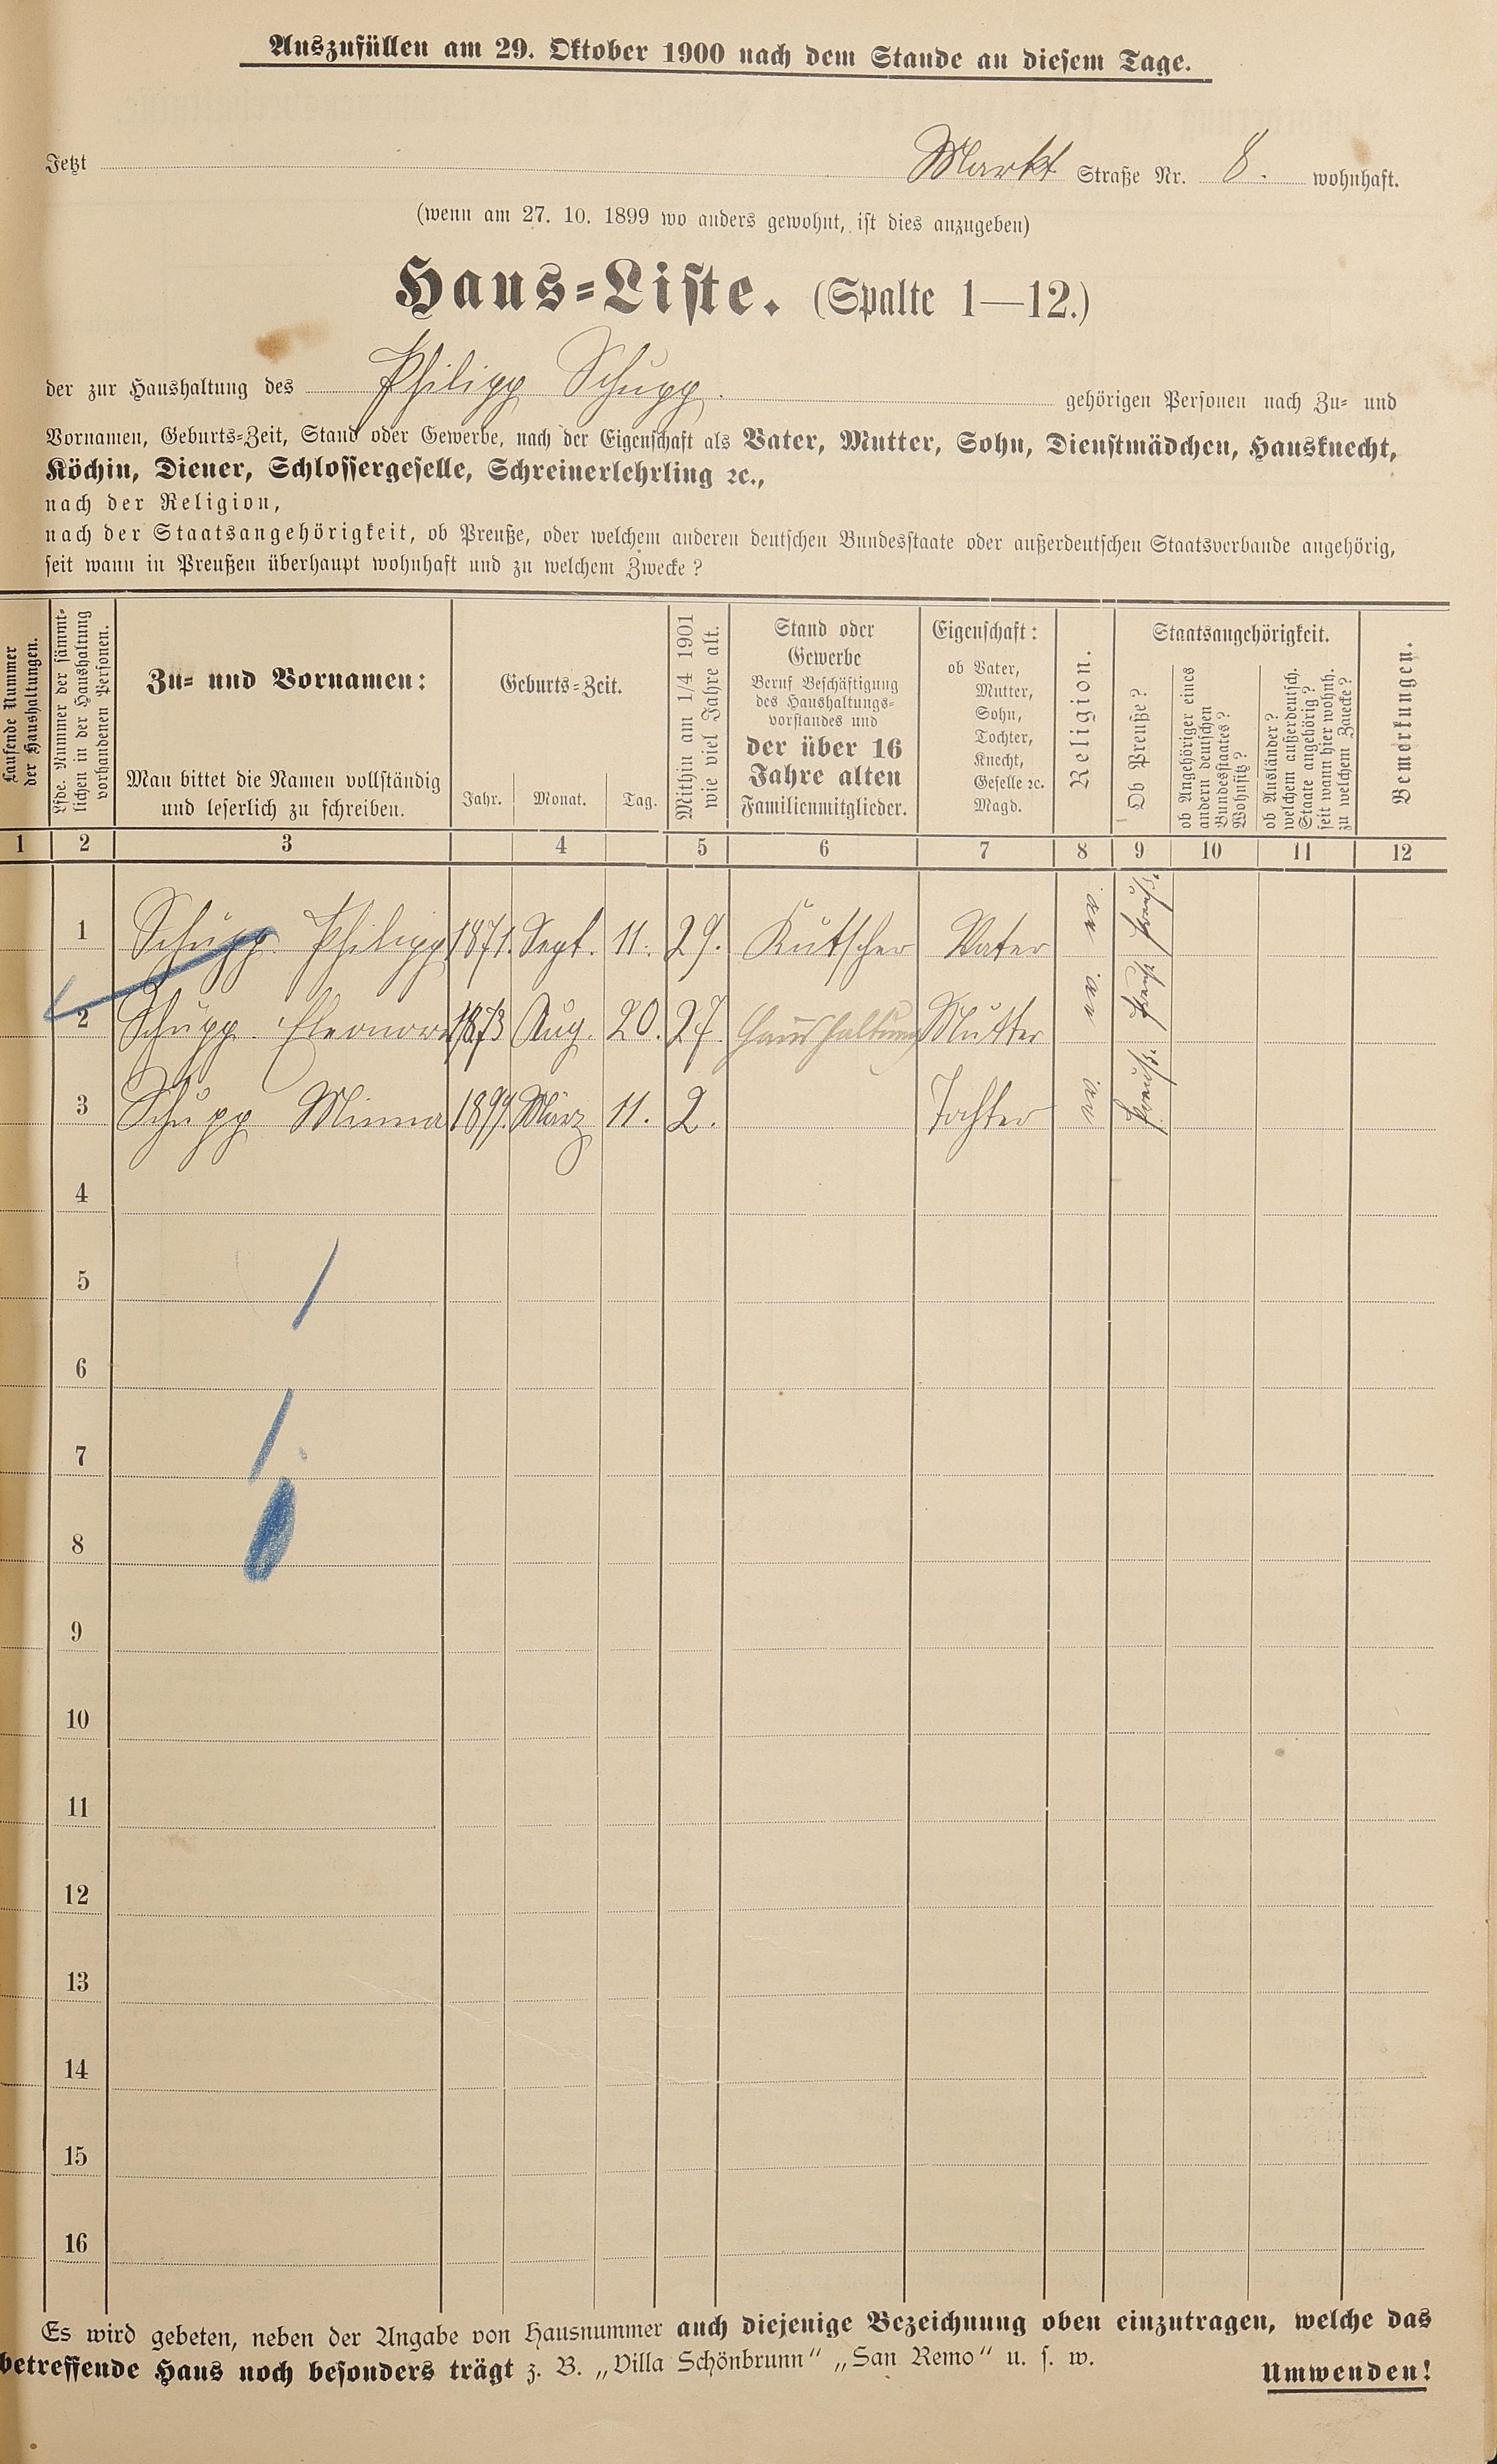 Auszufüllen am 29. Oktober 1900 nach dem Stande an diesem Tage.
Jetzt Markt Straße Nr. 8. wohnhaft.
(wenn am 27. 10. 1899 wo anders gewohnt, ist dies anzugeben)
Haus-Liste. (Spalte 1—12.)
der zur Haushaltung des Philipp Schupp. gehörigen Personen nach Zu- und
Vornamen, Geburts-Zeit, Stand oder Gewerbe, nach der Eigenschaft als Vater, Mutter, Sohn, Dienstmädchen, Hausknecht,
Köchin, Diener, Schlossergeselle, Schreinerlehrling ꝛc.,
nach der Religion,
nach der Staatsangehörigkeit, ob Preuße, oder welchem anderen deutschen Bundesstaate oder außerdeutschen Staatsverbande angehörig,
seit wann in Preußen überhaupt wohnhaft und zu welchem Zwecke?
Laufende Nummer
der Haushaltungen.
Lfde. Nummer der sämmt-
lichen in der Haushaltung
vorhandenen Personen.
Zu- und Vornamen:
Man bittet die Namen vollständig
und leserlich zu schreiben.
Geburts-Zeit.
Jahr. Monat. Tag.
Mithin am 1/4 1901
wie viel Jahre alt.
Stand oder
Gewerbe
Beruf Beschäftigung
des Haushaltungs-
vorstandes und
der über 16
Jahre alten
Familienmitglieder.
Eigenschaft:
ob Vater,
Mutter,
Sohn,
Tochter,
Knecht,
Geselle ꝛc.
Magd.
Religion.
Staatsangehörigkeit.
Ob Preuße?
ob Angehöriger eines
andern deutschen
Bundesstaates?
Wohnsitz?
ob Ausländer?
welchem außerdeutsch.
Staate angehörig?
seit wann hier wohnh.
zu welchem Zwecke?
Bemerkungen.
1 2 3 4 5 6 7 8 9 10 11 12
1 Schupp. Philipp 1871. Sept. 11. 29. Kutscher Vater ev Preuß.
2 Schupp. Eleonore 1873 Aug. 20. 27. Haushaltung Mutter ev Preuß.
3 Schupp Minna 1899. März 11. 2. Tochter ev Preuß.
4
5
6
7
8
9
10
11
12
13
14
15
16
Es wird gebeten, neben der Angabe von Hausnummer auch diejenige Bezeichnung oben einzutragen, welche das
betreffende Haus noch besonders trägt z. B. „Villa Schönbrunn“ „San Remo“ u. s. w.
Umwenden!